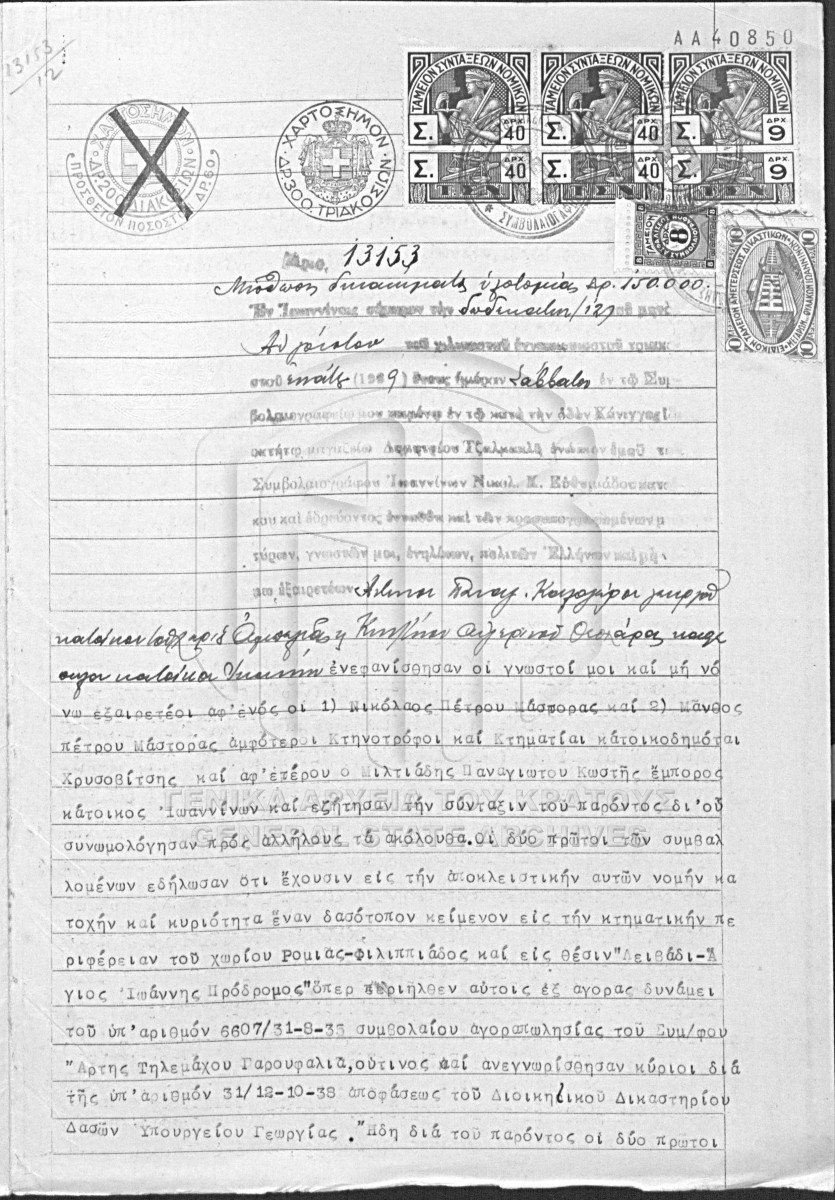 13153
12
ΑΑ 40850
ΧΑΡΤΟΣΗΜΟΝ
ΔΡ.200 ΔΙΑΚΟΣΙΩΝ
ΠΡΟΣΘΕΤΟΝ ΠΟΣΟΣΤ. ΔΡ.60
ΧΑΡΤΟΣΗΜΟΝ
ΔΡ.300 ΤΡΙΑΚΟΣΙΩΝ
ΤΑΜΕΙΟΝ ΣΥΝΤΑΞΕΩΝ ΝΟΜΙΚΩΝ
Σ. ΔΡΧ. 40
Σ. ΤΣΝ ΔΡΧ. 40
ΤΑΜΕΙΟΝ ΣΥΝΤΑΞΕΩΝ ΝΟΜΙΚΩΝ
Σ. ΔΡΧ. 40
Σ. ΤΣΝ ΔΡΧ. 40
ΤΑΜΕΙΟΝ ΣΥΝΤΑΞΕΩΝ ΝΟΜΙΚΩΝ
Σ. ΔΡΧ. 9
Σ. ΤΣΝ ΔΡΧ. 9
8
10 10
Αριθ. 13153
Μίσθωση δικαιώματος ὑλοτομίας Δρ. 150.000.
Ἐν Ἰωαννίνοις σήμερον τὴν δωδεκάτην (12) τοῦ μηνὸς
Αὐγούστου τοῦ χιλιοστοῦ ἐννεακοσιοστοῦ τριακο
στοῦ ἐνάτου (1939) ἔτους ἡμέραν Σάββατον ἐν τῷ Συμ
βολαιογραφείῳ μου κειμένῳ ἐν τῷ κατὰ τὴν ὁδὸν Κάνιγγος
οκτήτῳ μαγαζείῳ Δημητρίου Τζαλμακλῆ ἐνώπιον ἐμοῦ τ
Συμβολαιογράφου Ἰωαννίνων Νικολ. Κ. Εὐθυμιάδου κατοί
κου καὶ ἑδρεύοντος ἐνταῦθα καὶ τῶν προσυπογραφομένων μ
τύρων, γνωστῶν μοι, ἐνηλίκων, πολιτῶν Ἑλλήνων καὶ μὴ
μῳ ἐξαιρετέων
κατοίκου
κατοίκου ἐνεφανίσθησαν οἱ γνωστοί μοι καί μή νό
νω ἐξαιρετέοι ἀφ'ἑνός οἱ 1) Νικόλαος Πέτρου Μάστορας καί 2) Μᾶνθος
πέτρου Μάστορας ἀμφότεροι Κτηνοτρόφοι καί Κτηματίαι κάτοικοδημόται
Χρυσοβίτσης καί αφ'ετέρου ὁ Μιλτιάδης Παναγιωτου Κωστῆς ἔμπορος
κάτοικος Ἰωαννίνων καί εζήτησαν τήν σύνταξιν τοῦ παρόντος δι'οὗ
συνωμολόγησαν πρός αλλήλους τά ακόλουθα.οι δύο πρῶτοι τῶν συμβαλ
λομένων εδήλωσαν ὅτι ἔχουσιν εἰς τήν ἀποκλειστικήν αυτῶν νομήν κα
τοχήν καί κυριότητα ἕναν δασότοπον κείμενον εἰς τήν κτηματικήν πε
ριφέρειαν τοῦ χωρίου Ρομιᾶς-Φιλιππιάδος καί εἰς θέσιν"Λειβάδι-Ἅ
γιος Ἰωάννης Πρόδρομος"ὅπερ περιῆλθεν αὐτοις ἐξ αγορας δυνάμει
τοῦ ὑπ'ἀριθμόν 6607/31-8-35 συμβολαίου ἀγοραπωλησίας τοῦ Συμ/φου
"Αρτης Τηλεμάχου Γαρουφαλιᾶ,οὗτινος καί ανεγνωρίσθησαν κύριοι διά
τῆς ὑπ'ἀριθμόν 31/12-10-38 ἀποφάσεως τοῦ Διοικητικοῦ Δικαστηρίου
Δασῶν Ὑπουργείου Γεωργίας ."Ηδη διά τοῦ παρόντος οἱ δύο πρῶτοι
ΓΕΝΙΚΑ ΑΡΧΕΙΑ ΤΟΥ ΚΡΑΤΟΥΣ
GENERAL STATE ARCHIVES